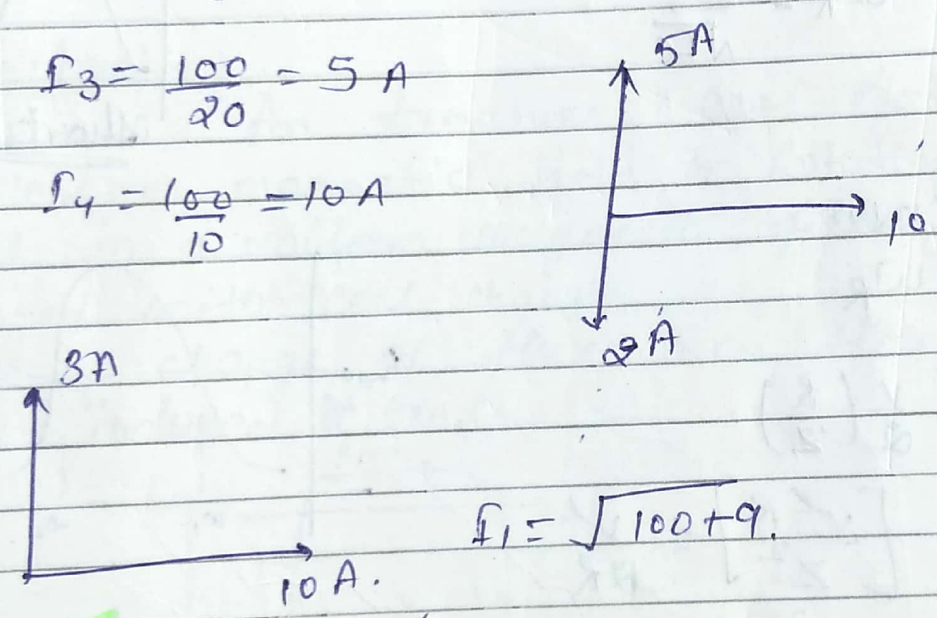 I3 = 100/20 = 5 A
I4 = 100/10 = 10 A
5A
10
2A
3A
10 A.
I1 = √100+9.